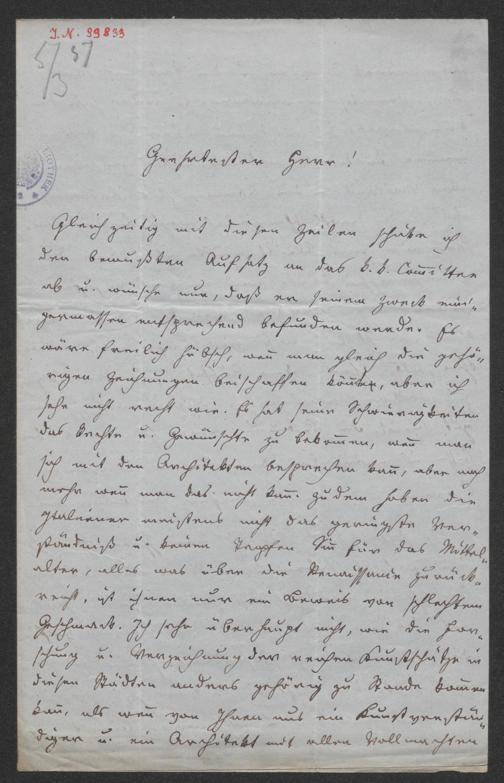 I.N. 99833
5/3 57
Geehrtester Herr!
Gleichzeitig mit diesen Zeilen schicke ich
den bewußten Aufsatz an das k. k. Committee
ab u. wünsche nur, daß er seinem Zweck eini-
germassen entsprechend befunden werde. Es
wäre freilich hübsch, wenn man gleich die gehö-
rigen Zeichnungen beischaffen könnte, aber ich
sehe nicht recht wie. Es hat seine Schwierigkeiten
das Rechte u. Gewünschte zu bekommen, wenn man
sich mit den Architekten besprechen kann, aber noch
mehr wenn man das nicht kann. Zudem haben die
Italiener meistens nicht das geringste Ver-
ständniß u. keinen Sinn für das Mittel-
alter, alles was über die Renaissance zurück-
reicht, ist ihnen nur ein Beweis von schlechtem
Geschmack. Ich sehe überhaupt nicht, wie die For-
schung u. Verzeichnung der reichen Kunstschätze in
diesen Städten anders gehörig zu Stande kommen
kann, als wenn von Ihnen aus ein Kunstverstän-
diger u. ein Architekt mit allen Vollmachten